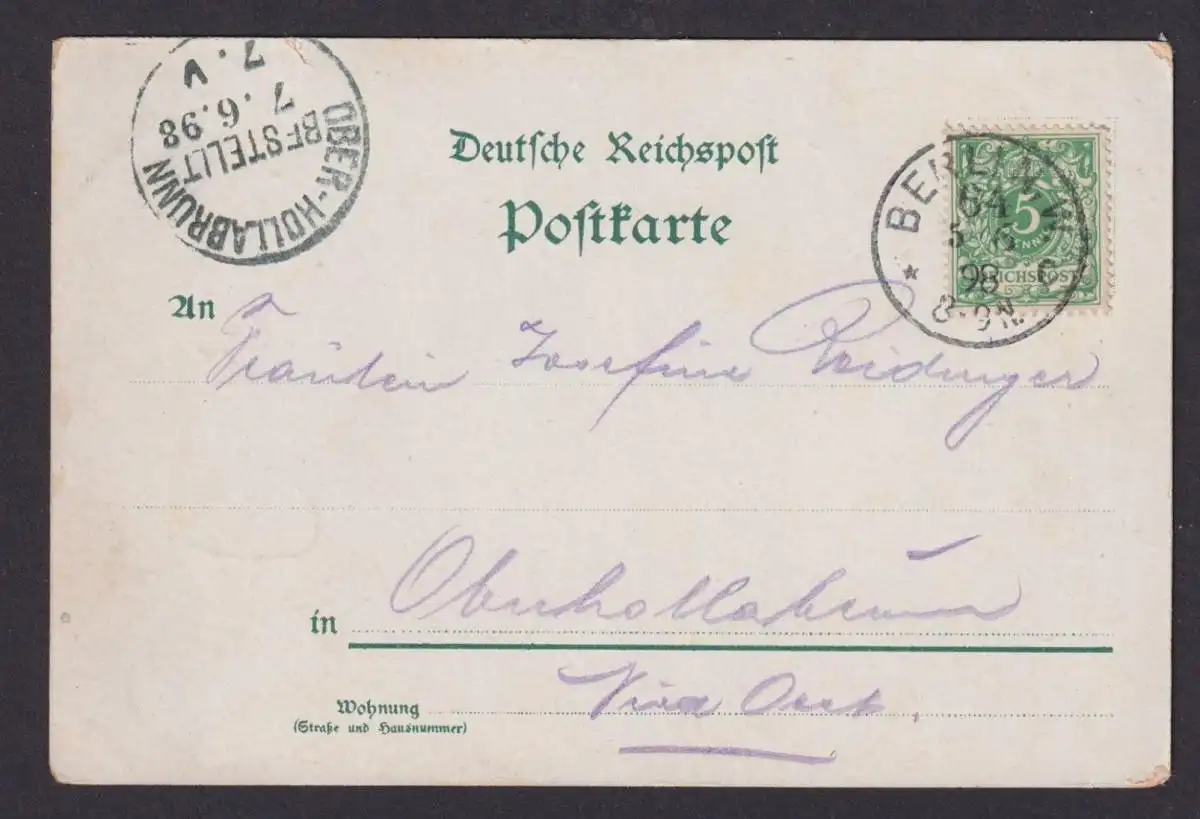 OBER-HOLLABRUNN
BESTELLT
7.6.98
7.V
Deutsche Reichspost
Postkarte
BERLIN W.
64
5 6
98
8-9N.
5
PFENNIG
REICHSPOST
An Fräulein Josefine Reidinger
in Oberhollabrunn
Wohnung
(Straße und Hausnummer)
Oest.